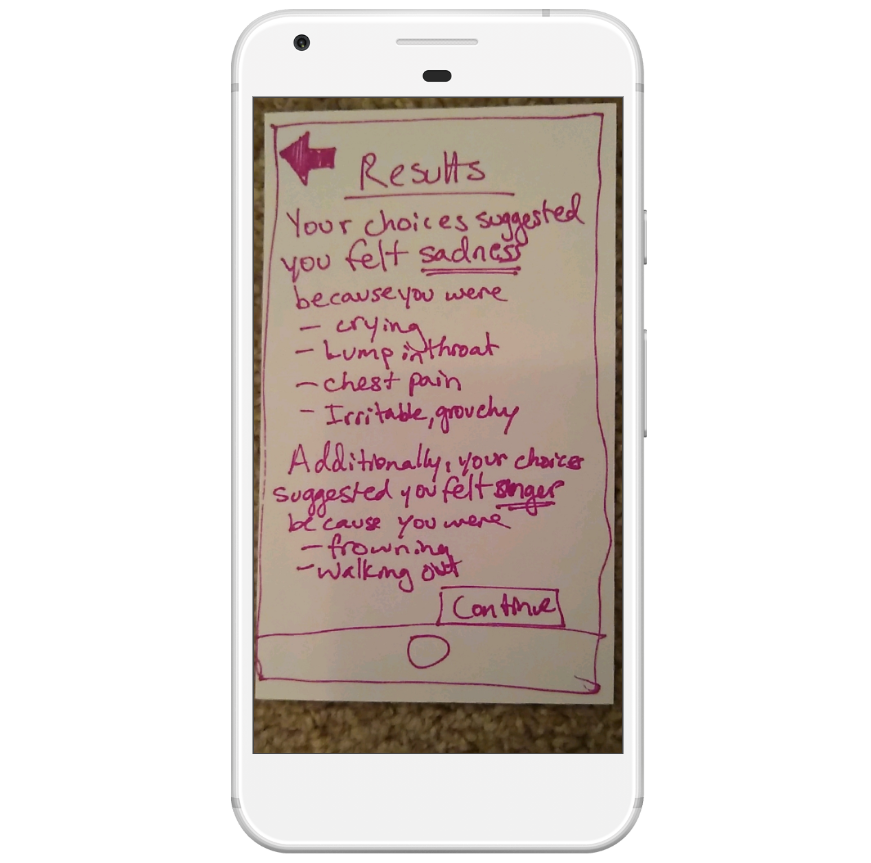 Results
Your choices suggested
you felt sadness
because you were
- crying
- Lump in throat
- chest pain
- Irritable, grouchy
Additionally, your choices
suggested you felt anger
because you were
- frowning
- walking out
Continue